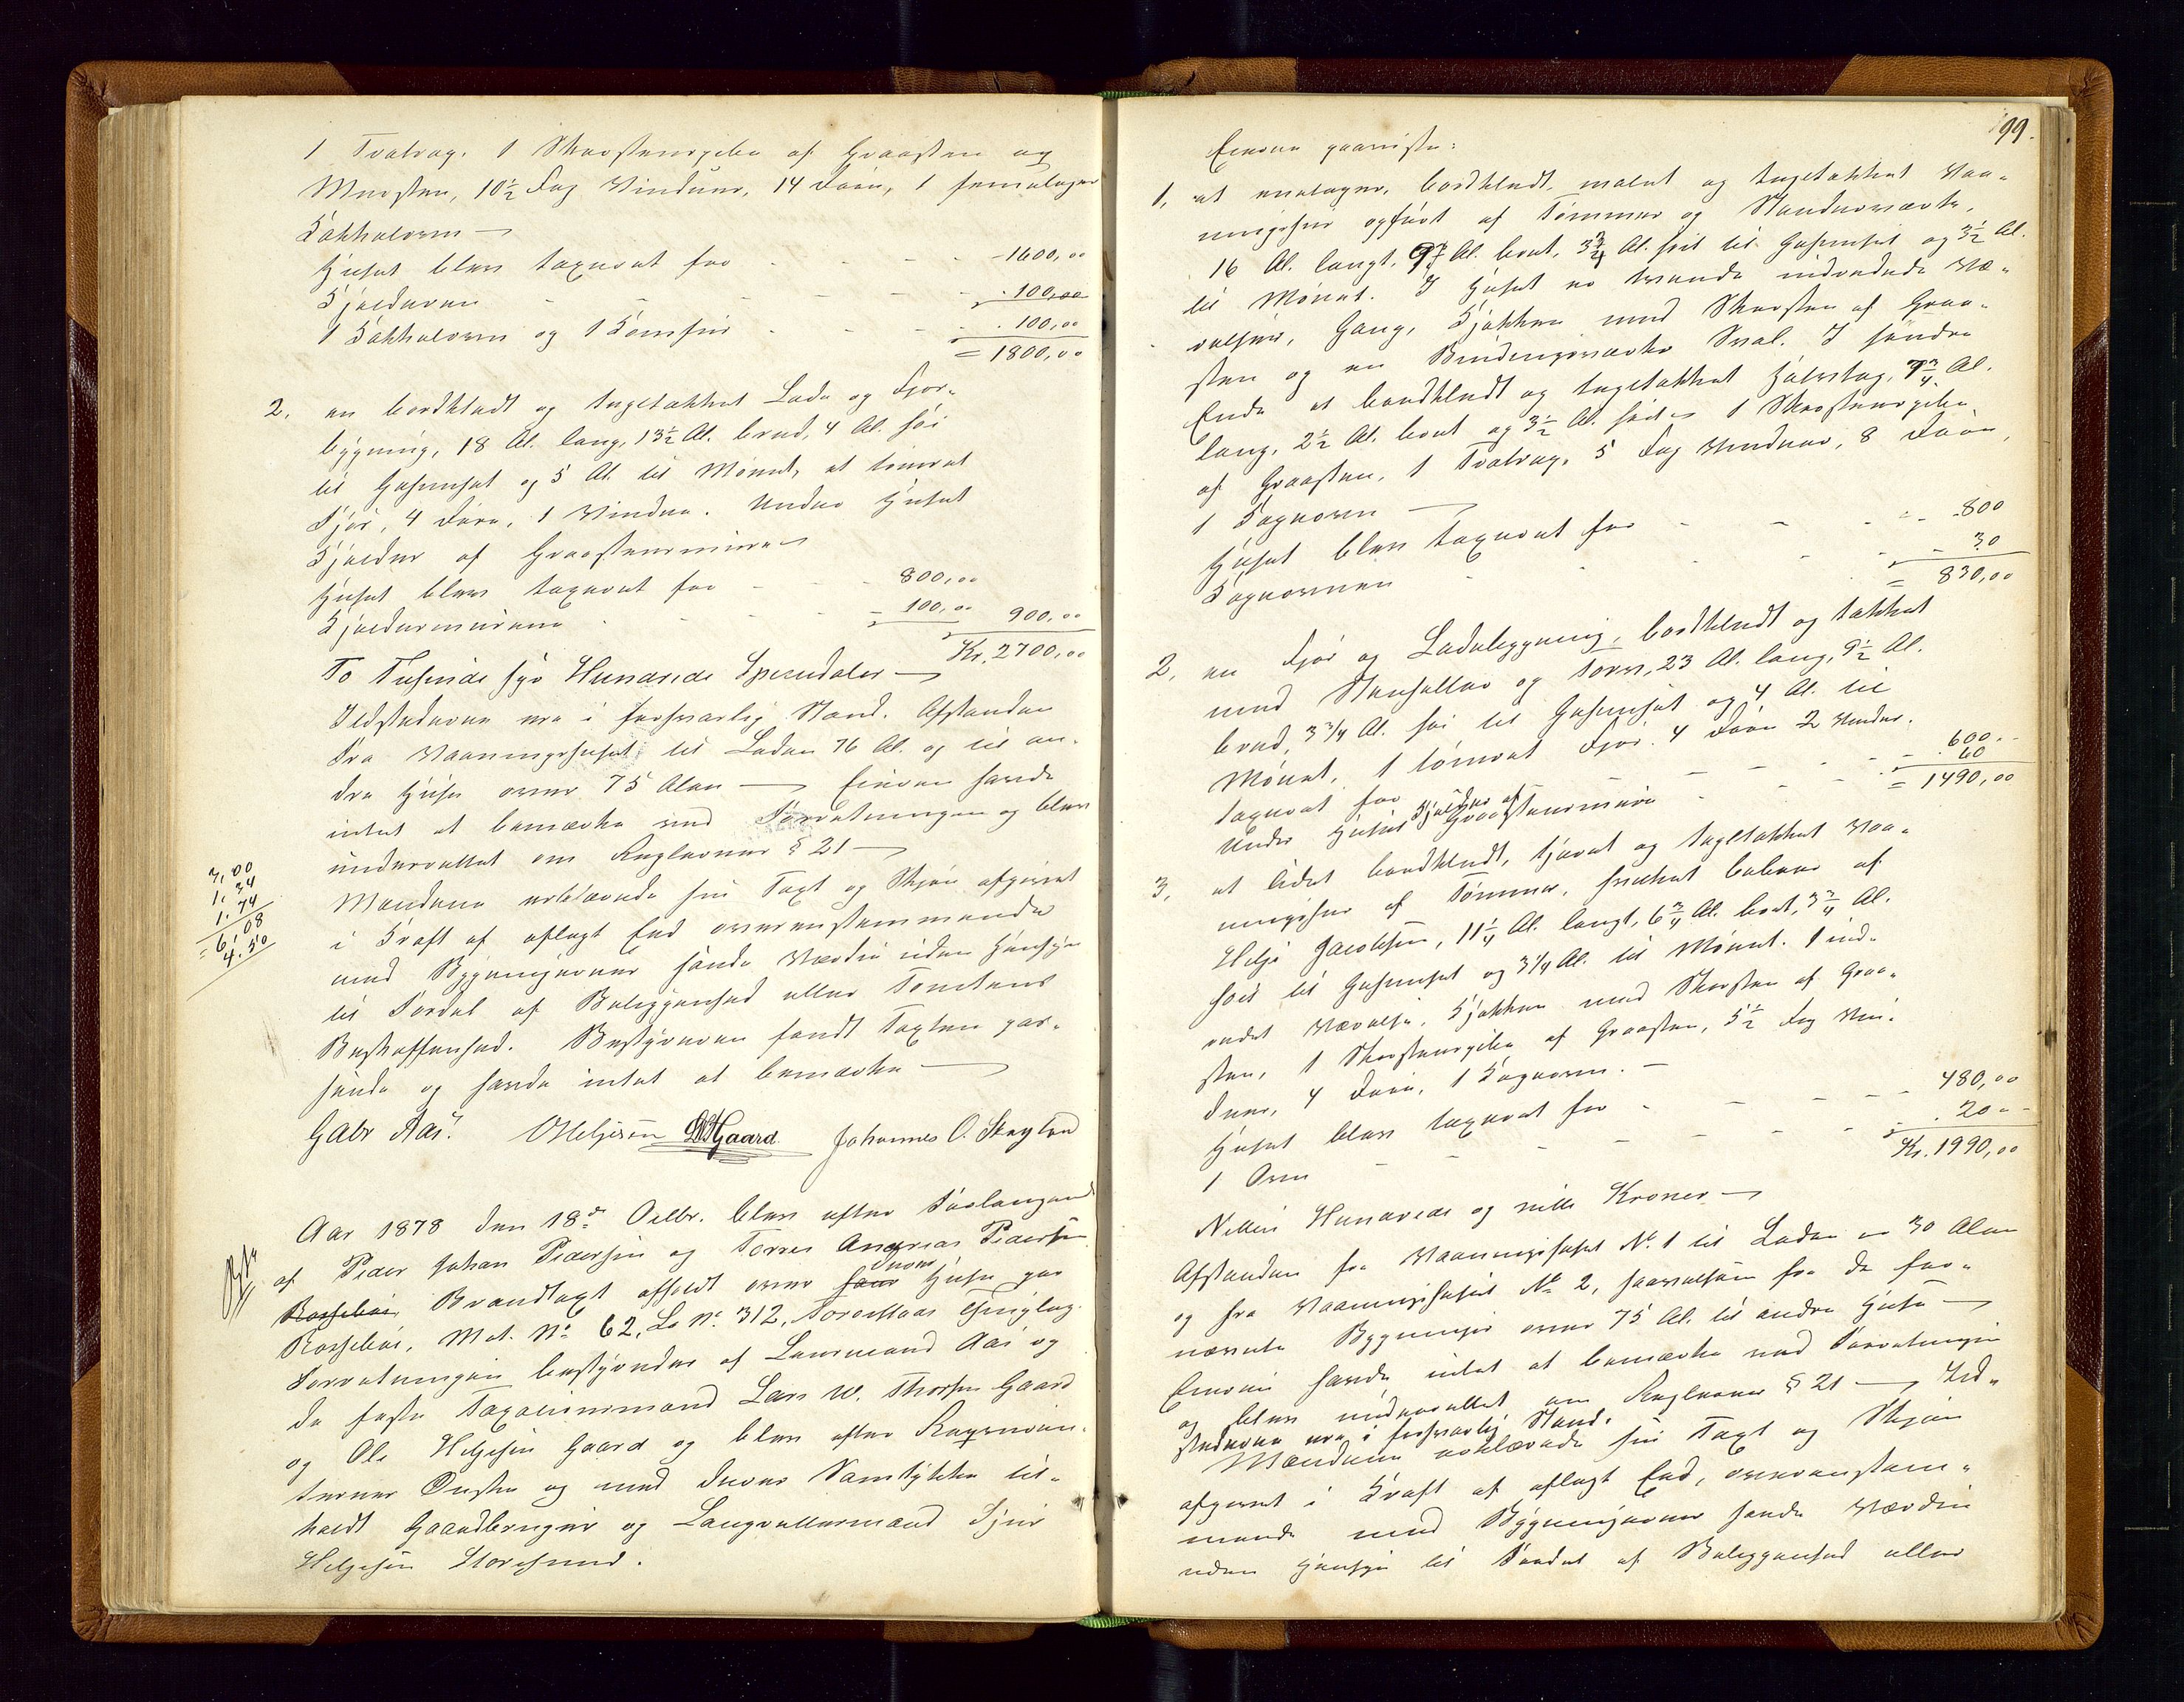 1 Tralrag, 1 Skorstenspibe af Graasten og
Mursten, 10½ Fag Vinduer, 14 Døre, 1 femetages
Kakkelovn —
Huset blev taxeret for - - - 1600,00
Kjelderen - - - 100,00
1 Kakkelovn og 1 Komfur - - - 100,00
= 1800,00
2, en bordklædt og tegltækket Lade og Fjøs-
bygning, 18 Al. lang, 13½ Al. bred, 4 Al. høi
til Gesimset og 5 Al. til Mønet, et tømret
Fjøs, 4 Døre, 1 Vindue. Under Huset
Kjelder af Graastensmure
Huset blev taxeret for - - 800,00
Kjeldermurene - - = 100,00 900,00
Kr. 2700,00
To Tusinde syv Hundrede Speciedaler —
Ildstederne ere i forsvarlig Stand. Afstanden
fra Vaaningshuset til Laden 76 Al. og til an-
dre Huse over 75 Alen — Eieren havde
intet at bemærke ved Forretningen og blev
underrettet om Reglerne § 21 —
Mændene erklærede sin Taxt og Skjøn afgivet
i Kraft af aflagt Eed overensstemmende
med Bygningernes sande Værdi uden Hensyn
til Fordel af Beliggenhed eller Tomtens
Beskaffenhed. Bestyreren fandt Taxten pas-
sende og havde intet at bemærke —
Gabr Aas. OHelgesen LWTGaard Johannes O.
3,00
1,34
1,74
= 6,08
4,50
Aar 1878 den 18de Octbr. blev efter Forlangende
af Peder Johan Pedersen og Torres Andreas Pedersen
Rossebøe, Brandtaxt afholdt over deres Huse paa
Rossebøe, Mat. No 62, Lb No. 312, Torvestad Thinglag.
Forretningen bestyredes af Lensmand Aas og
de faste Taxationsmænd Lars W. Thorsen Gaard
og Ole Helgesen Gaard og blev efter Reqviren-
ternes Ønske og med deres Samtykke til-
kaldt Gaardbruger og Lagrettesmand Sjur
Helgesen Storesund.
99.
Eierne paaviste:
1, et enetages, bordklædt, malet og tegltækket Vaa-
ningshus opført af Tømmer og Standerværk,
16 Al. langt, 9¾ Al. bredt, 3¾ Al. høit til Gesimset og 3½ Al.
til Mønet. I Huset er tvende indredede Væ-
relser, Gang, Kjøkken med Skorsten af Graa-
sten og en Bindingsværks Sval. I søndre
Ende et bordklædt og tegltækket Halvtag, 7¾ Al.
lang, 2½ Al. bredt og 3½ Al. høit - 1 Skorstenspibe
af Graasten, 1 Tralrag, 5 Fag Vinduer, 8 Døre,
1 Bagerovn —
Huset blev taxeret for - - - 800
Bagerovnen - - - 30
= 830,00
2, en Fjøs og Ladebygning, bordklædt og tækket
med Stenheller og Torv, 23 Al. lang, 9½ Al.
bred, 3 3/4 Al. høi til Gesimset og 4 Al. til
Mønet, 1 tømret Fjøs. 4 Døre 2 Vinduer.
taxeret for - - - 600 -
Under Huset Kjelder af Graastensmure - - 60
= 1490,00
3, et lidet bordklædt, tjæret og tegltækket Vaa-
ningshus af Tømmer, hvilket beboes af
Helge Jacobsen, 11¼ Al. langt, 6¾ Al. bredt, 3¾ Al.
høit til Gesimset og 3 1/4 Al. til Mønet. 1 ind-
redet Værelse, Kjøkken med Skorsten af Graa-
sten, 1 Skorstenspibe af Graasten, 5½ Fag Vin-
duer, 4 Døre, 1 Bagerovn. —
Huset blev taxeret for - - - 480,00
1 Ovn - - - 20 -
Kr. 1990,00
Nitten Hundrede og nitti Kroner —
Afstanden fra Vaaningshuset No. 1 til Laden er 30 Alen
og fra Vaaningshuset No 2, saavelsom fra de for-
nævnte Bygninger over 75 Al. til andre Huse —
Eierne havde intet at bemærke ved Forretningen
og blev underrettet om Reglerne § 21 — Ild-
stederne ere i forsvarlig Stand.
Mændene erklærede sin Taxt og Skjøn
afgivet i Kraft af aflagt Eed, overensstem-
mende med Bygningernes sande Værdi
uden Hensyn til Fordel af Beliggenhed eller